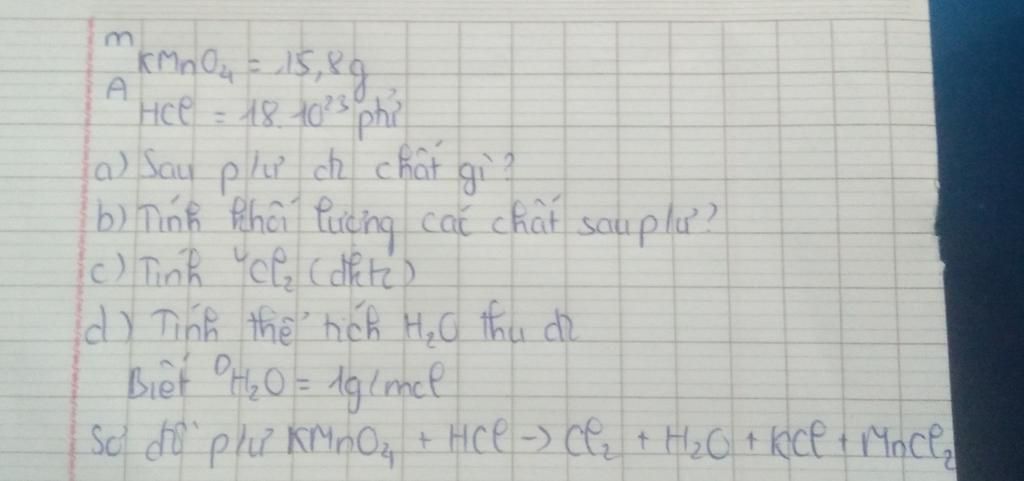 mKMnO₄ = 15,8g
A HCl = 18.10²³ ptử
a) Sau p/ư đc chất gì?
b) Tính khối lượng các chất sau p/ư?
c) Tính VCl₂ (đktc)
d) Tính thể tích H₂O thu đc
Biết DH₂O = 1g/ml
Sơ đồ p/ư KMnO₄ + HCl → Cl₂ + H₂O + KCl + MnCl₂